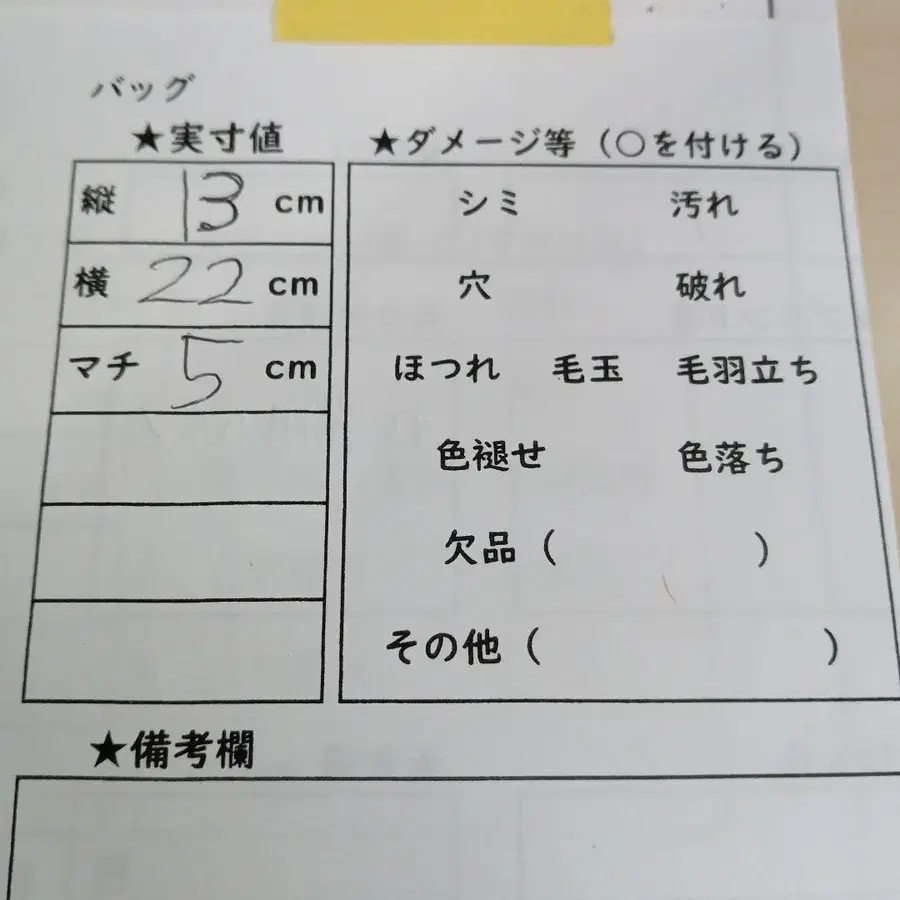 バッグ
★実寸値
縦 13 cm
横 22 cm
マチ 5 cm
★ダメージ等（○を付ける）
シミ 汚れ
穴 破れ
ほつれ 毛玉 毛羽立ち
色褪せ 色落ち
欠品（ ）
その他（ ）
★備考欄